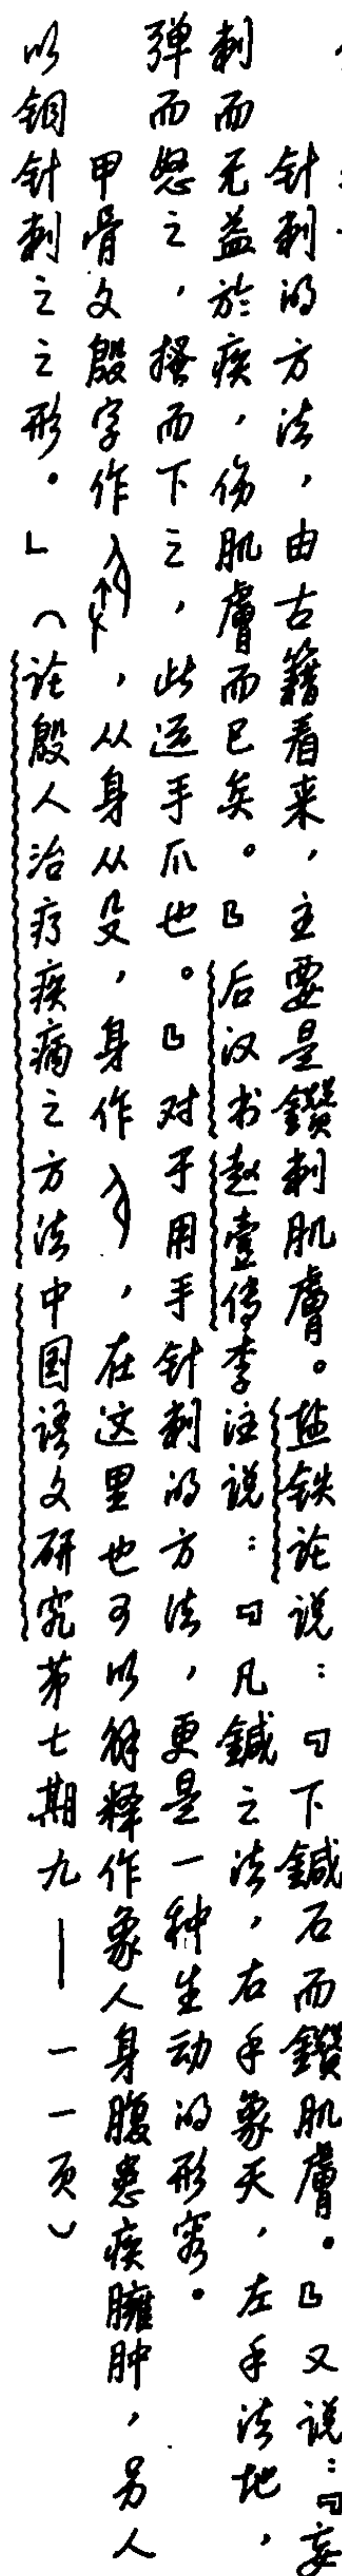 针刺的方法，由古籍看来，主要是鑽刺肌膚。盐铁论说：『下鍼石而鑽肌膚。』又说：『妄
刺而无益於疾，伤肌膚而已矣。』后汉书赵壹传李注说：『凡鍼之法，右手象天，左手法地，
弹而怒之，搔而下之，此运手爪也。』对于用手针刺的方法，更是一种生动的形容。
甲骨文殷字作，从身从殳，身作，在这里也可以解释作象人身腹患疾臃肿，另人
以铜针刺之之形。」（论殷人治疗疾病之方法中国语文研究第七期九——一一页）